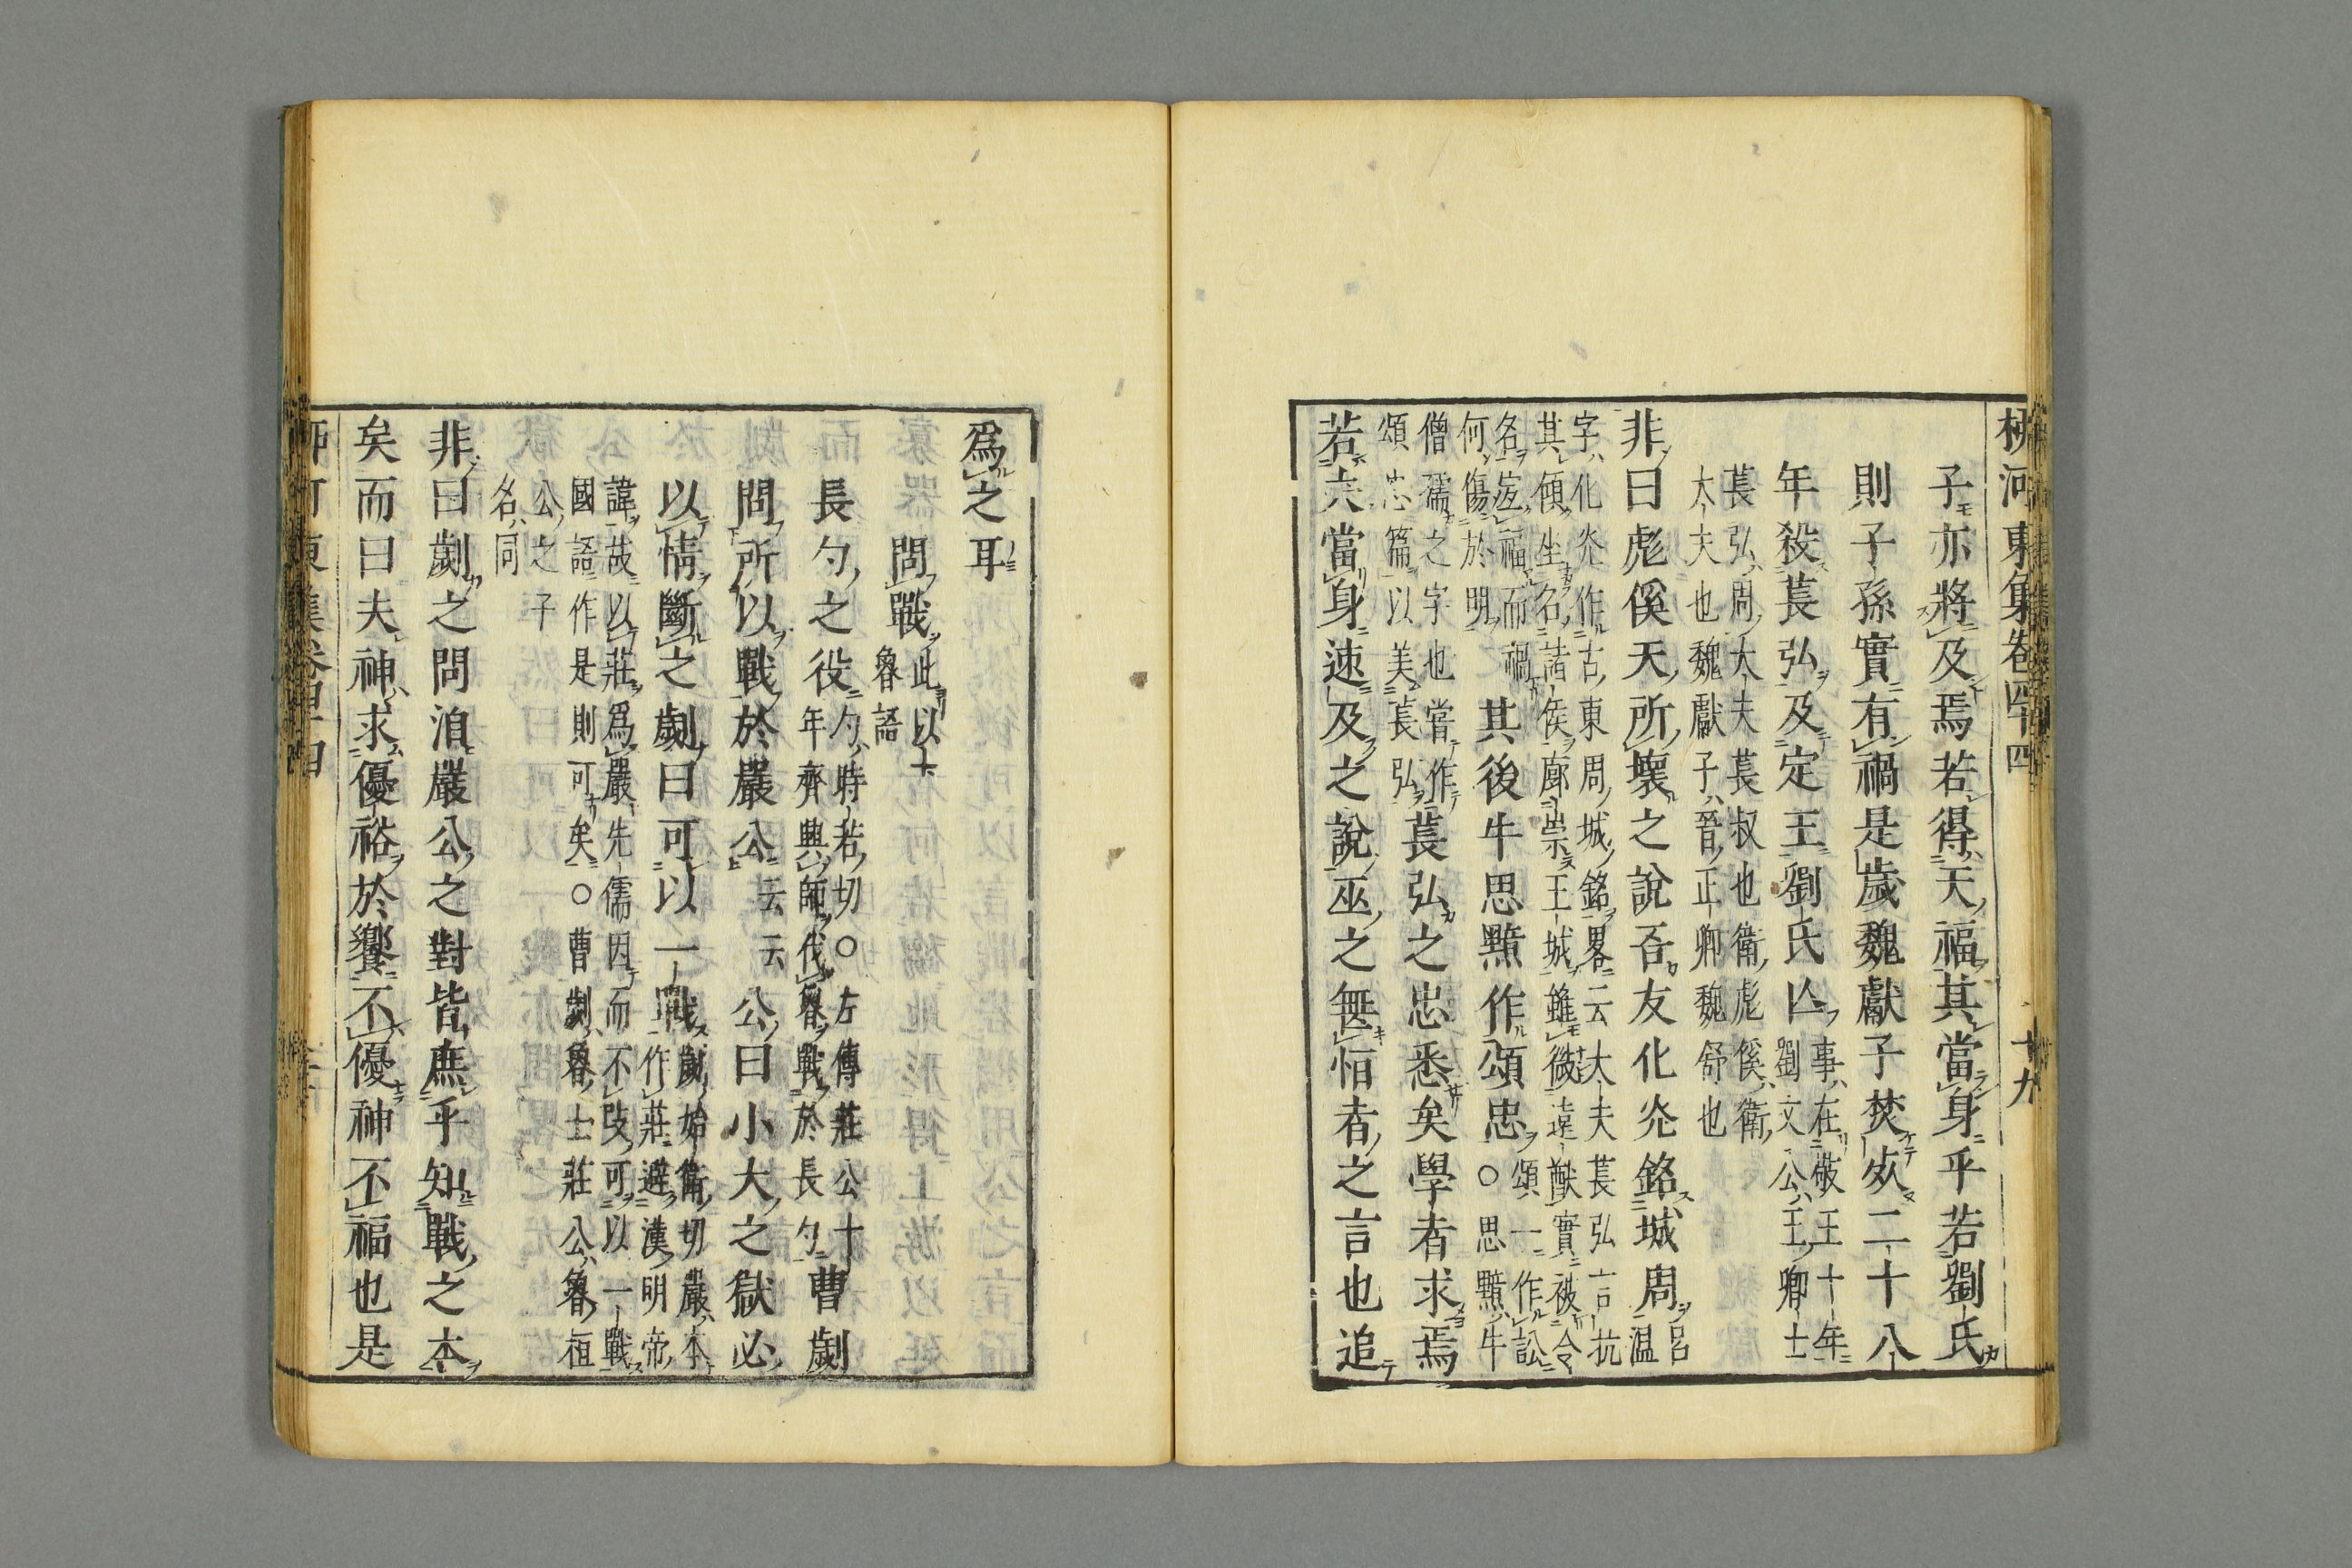 柳河東集卷四十四　十九
子亦將及焉若得天福其當身乎若劉氏
則子孫實有禍是歲魏獻子焚死二十八
年殺萇弘及定王劉氏亾事在敬王十年
劉文公王卿士
萇弘周大夫萇叔也衛彪傒衛
大夫也魏獻子晉正卿魏舒也
非曰彪傒天所壞之說吾友化光銘城周呂温
字化光作古東周城銘畧云大夫萇弘言抗
其傾坐名諸侯廓崇王城雖微遠猷實被令
名豈福而禍其後牛思黯作頌忠頌一作訟
何傷於明○思黯牛
僧孺之字也嘗作萇弘之忠悉矣學者求焉
頌忠篇以美萇弘
若夫當身速及之說巫之無恒者之言也追
爲之耳
問戰此以十
魯語
長勺之役勺時若切○左傳莊公十曹劌
年齊興師伐魯戰於長勺
問所以戰於嚴公云云公曰小大之獄必
以情斷之劌曰可以一戰劌始衛切嚴本
作莊避漢明帝
諱故以莊爲嚴先儒因而不改可以一戰
國語作是則可矣○曹劌魯士莊公魯桓
公之子
名同
非曰劌之問洎嚴公之對皆庶乎知戰之本
矣而曰夫神求優裕於饗不優神不福也是